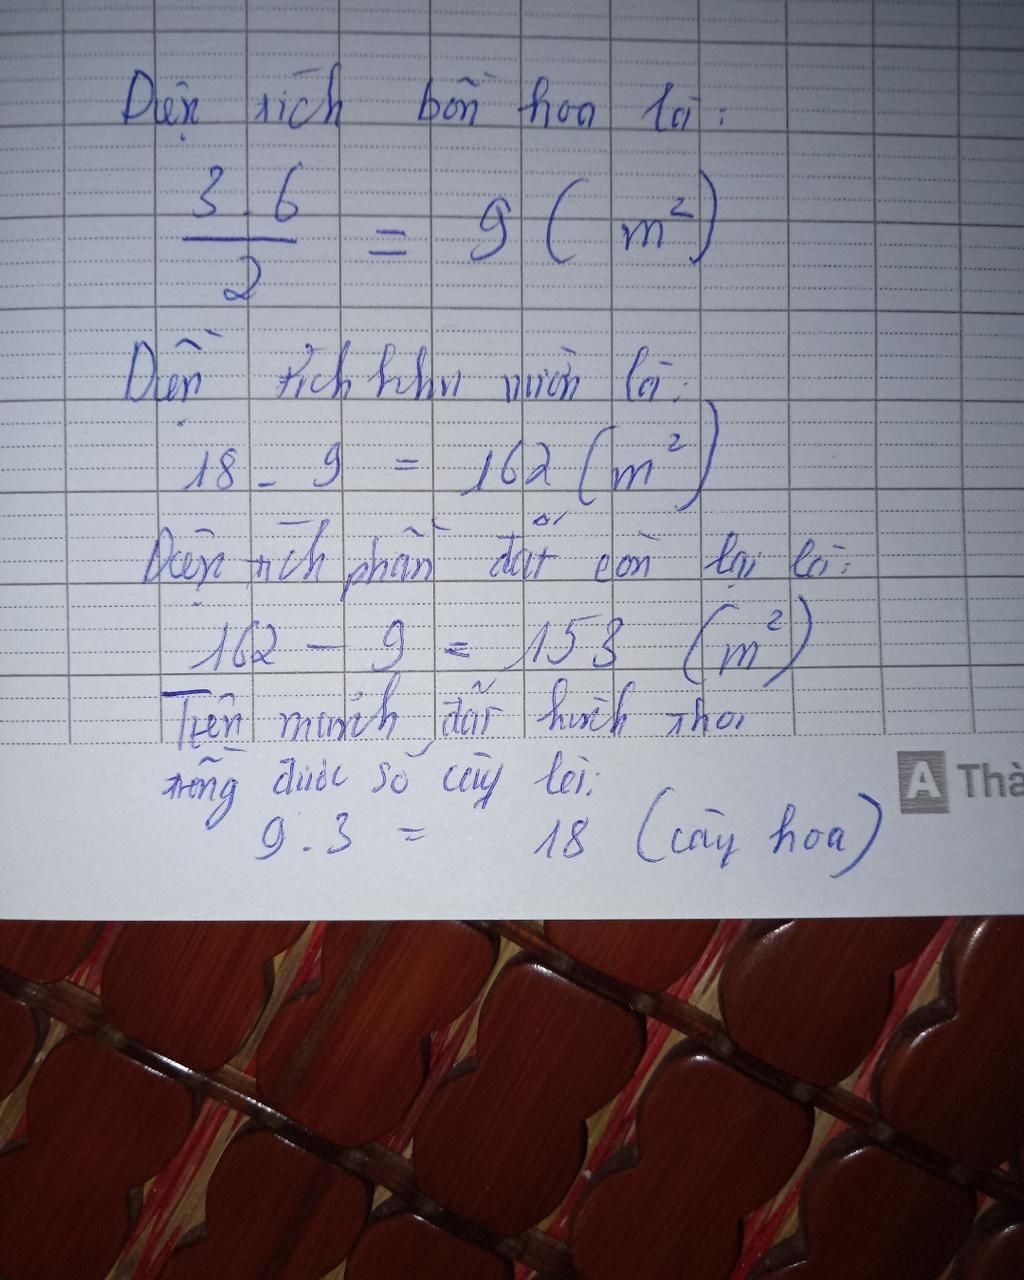 Diện tích bồn hoa là:
3 . 6
2
= 9 ( m²)
Diện tích khu vườn là:
18 . 9 = 162 (m²)
Diện tích phần đất còn lại là:
162 - 9 = 153 (m²)
Trên mảnh đất hình thoi
trồng được số cây là:
9 . 3 = 18 (cây hoa)
A Thà